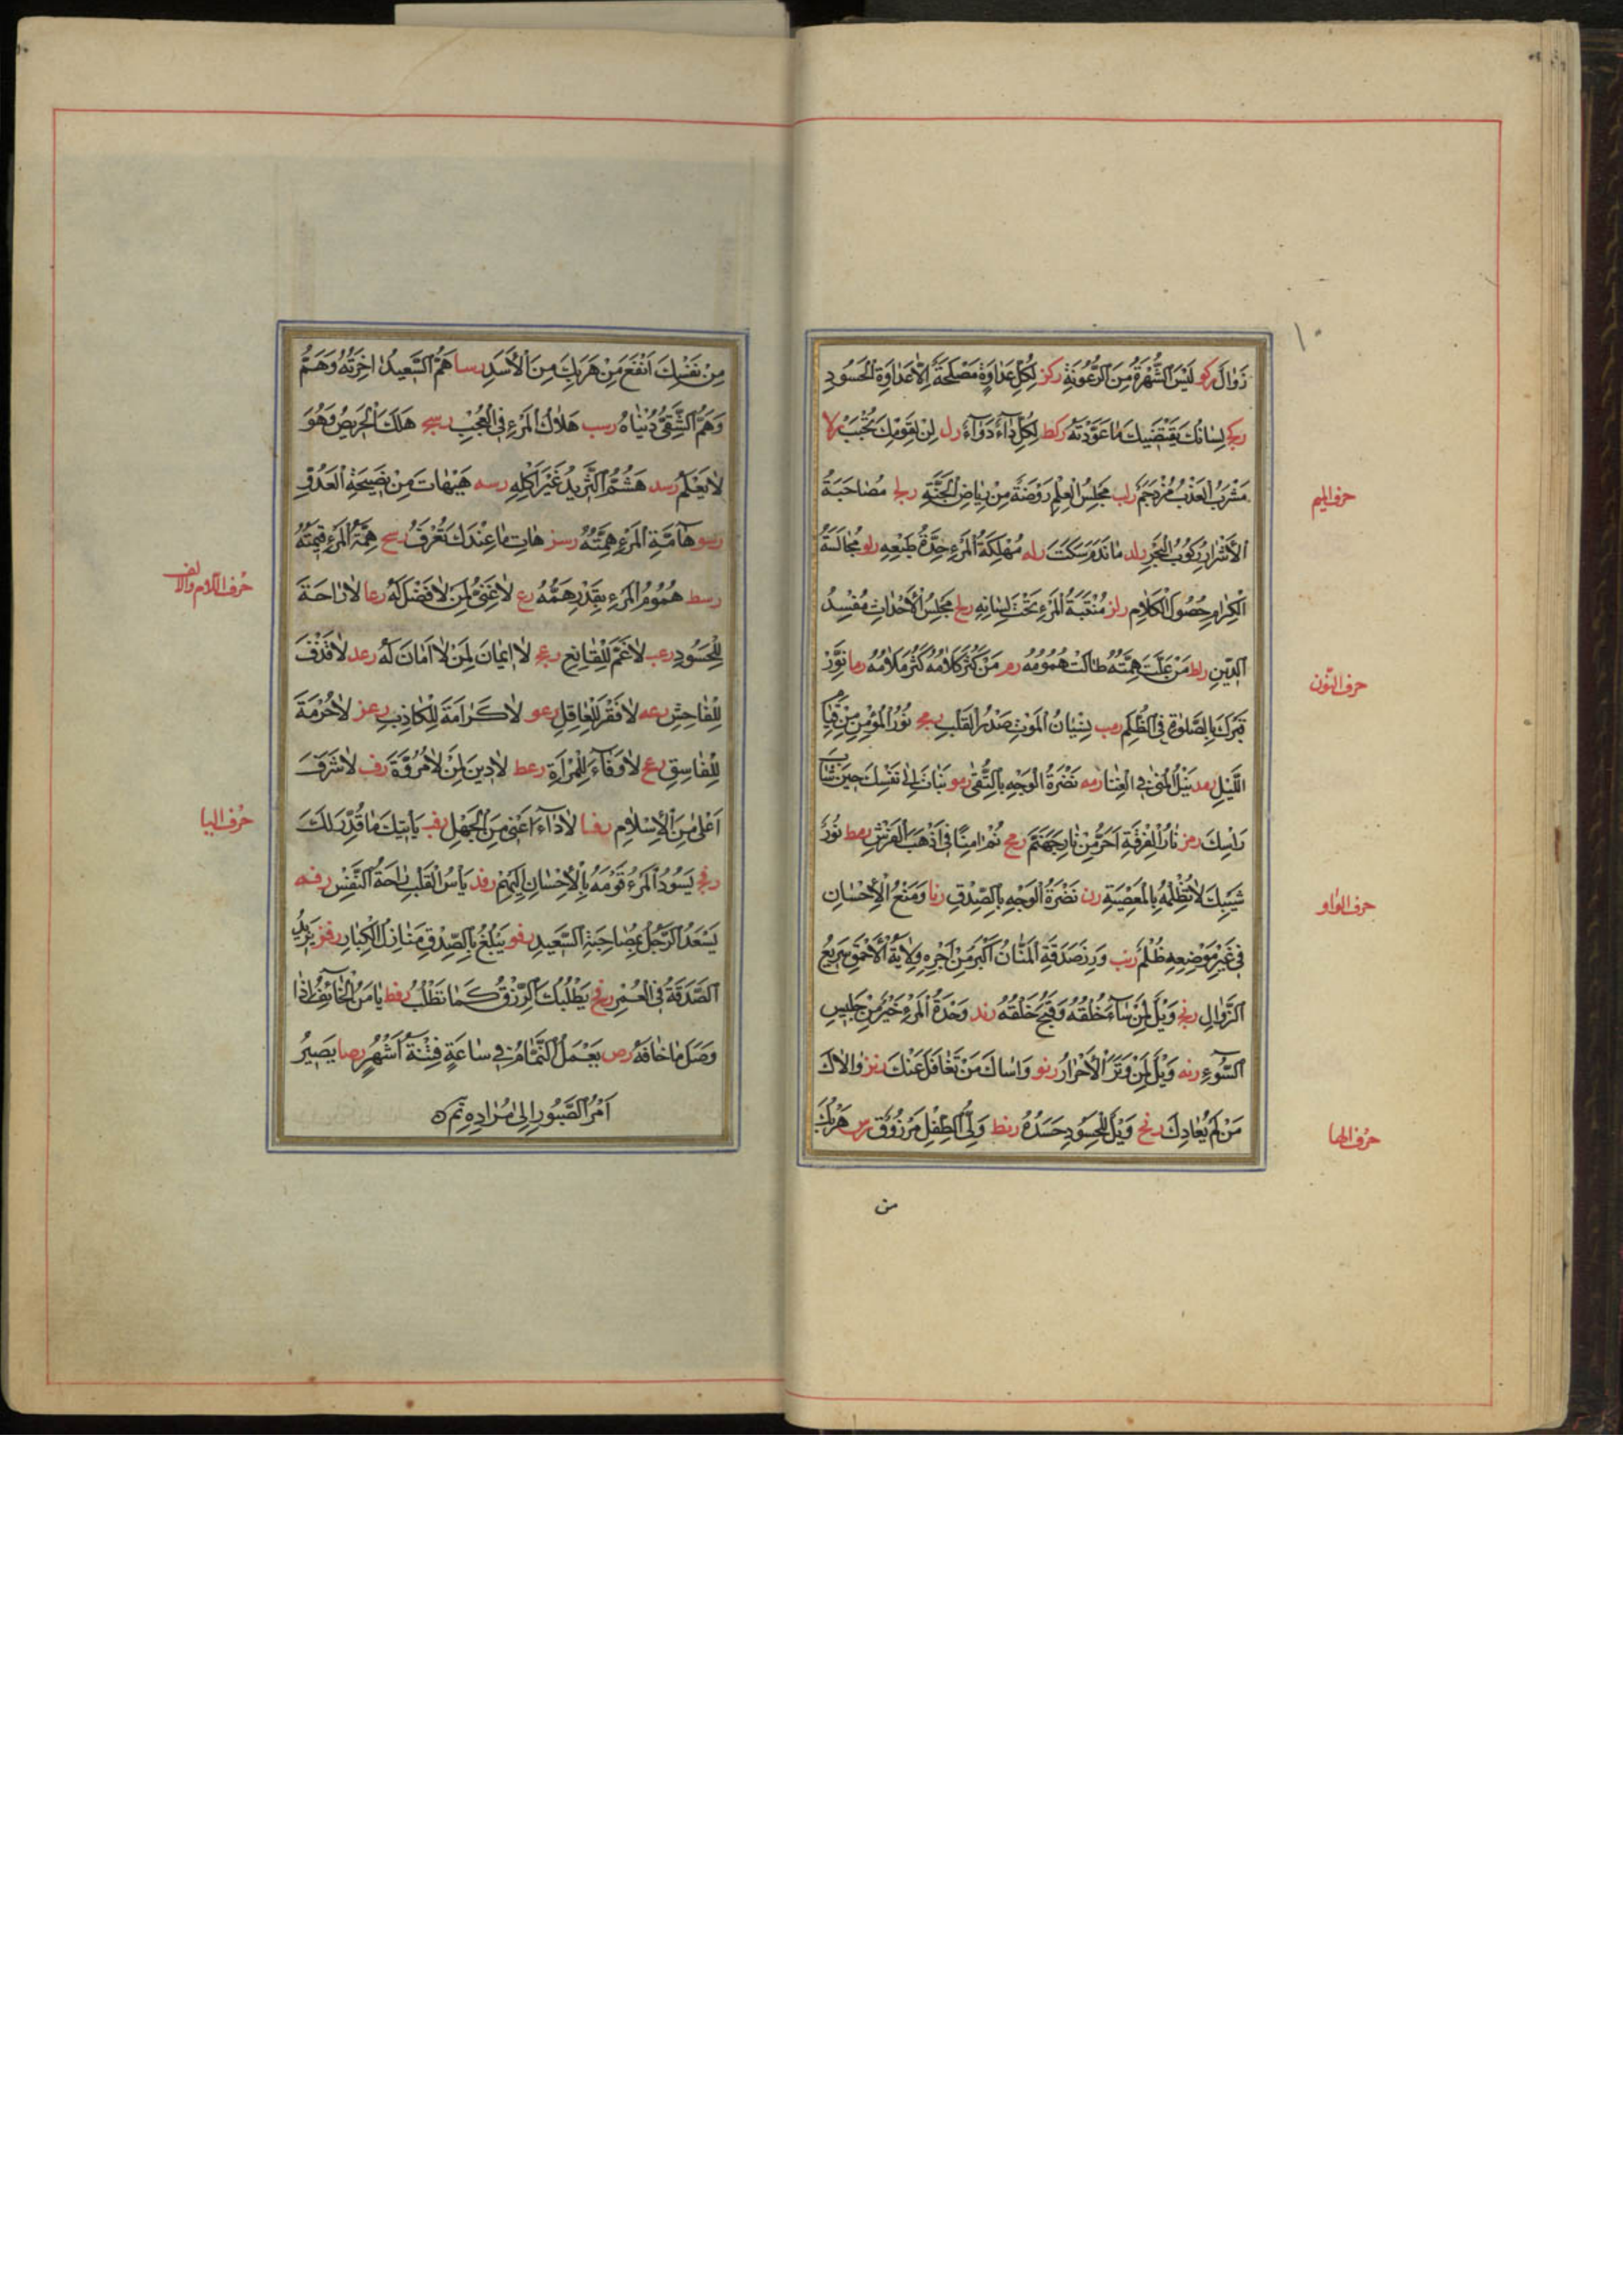 ١٠
زَوَالٌ ركو لَيْسَ الشُّهْرَةُ مِنَ الرُّعُونَةِ ركز لِكُلِّ عَدَاوَةٍ مَصْلَحَةٌ اِلَّا عَدَاوَةَ الْحَسُودِ
ركح لِسَانُكَ يَقْتَضِيكَ مَا عَوَّدْتَهُ ركط لِكُلِّ دَآءٍ دَوَآءٌ رل لِنْ لِقَوْمِكَ تُحْبَبْ رلا
حرف الميم
مَشْرَبُ الْعَذْبِ مُزْدَحَمٌ رلب مَجْلِسُ الْعِلْمِ رَوْضَةٌ مِنْ رِيَاضِ الْجَنَّةِ رلج مُصَاحَبَةُ
الْأَشْرَارِ رُكُوبُ الْبَحْرِ رلد مَا نَدِمَ مَنْ سَكَتَ رله مُهْلِكَةُ الْمَرْءِ حِدَّةُ طَبْعِهِ رلو مُجَالَسَةُ
الْكِرَامِ حُصُولُ الْكَلَامِ رلز مُنْقَبَةُ الْمَرْءِ تَحْتَ لِسَانِهِ رلح مَجْلِسُ الْأَحْدَاثِ مُفْسِدُ
حرف النون
الدِّينِ رلط مَنْ عَلَتْ هِمَّتُهُ طَالَتْ هُمُومُهُ رم مَنْ كَثُرَ كَلَامُهُ كَثُرَ مَلَامُهُ رما نَوِّرْ
قَبْرَكَ بِالصَّلٰوةِ فِي الظُّلَمِ رمب نِسْيَانُ الْمَوْتِ صَدَءُ الْقَلْبِ رمج نُورُ الْمُؤْمِنِ مِنْ قِيَامِ
اللَّيْلِ رمد نَيْلُ الْمُنٰى فِي الْغِنَا رمه نَضْرَةُ الْوَجْهِ بِالتُّقٰى رمو نَبَاتٌ اِلٰى نَفْسِكَ حِينَ شَابَ
رَاسُكَ رمز نَارُ الْفُرْقَةِ اَحَرُّ مِنْ نَارِ جَهَنَّمَ رمح نَمْ اٰمِنًا فِي اَذْهَبِ الْفَرْشِ رمط نُورُ
حرف الواو
شَيْبِكَ لَا تُظْلِمْهُ بِالْمَعْصِيَةِ رن نَضْرَةُ الْوَجْهِ بِالصِّدْقِ رنا وَضْعُ الْاِحْسَانِ
فِي غَيْرِ مَوْضِعِهِ ظُلْمٌ رنب وِزْرُ صَدَقَةِ الْمَنَّانِ اَكْبَرُ مِنْ اَجْرِهِ وِلَايَةُ الْأَحْمَقِ سَرِيعُ
الزَّوَالِ رنج وَيْلٌ لِمَنْ سَآءَ خُلْقُهُ وَقَبُحَ خَلْقُهُ رند وَحْدَةُ الْمَرْءِ خَيْرٌ مِنْ جَلِيسِ
السُّوءِ رنه وَيْلٌ لِمَنْ وَتَرَ الْأَحْرَارَ رنو وَاسَاكَ مَنْ تَغَافَلَ عَنْكَ رنز وَالَاكَ
حرف الها
مَنْ لَمْ يُعَادِكَ رنح وَيْلٌ لِلْحَسُودِ حَسَدُهُ رنط وَلِيُّ الطِّفْلِ مَرْزُوقٌ رس هَرَبُكَ
من
مِنْ نَفْسِكَ اَنْفَعُ مِنْ هَرَبِكَ مِنَ الْأَسَدِ رسا هَمُّ السَّعِيدِ اٰخِرَتُهُ وَهَمُّ
وَهَمُّ الشَّقِيِّ دُنْيَاهُ رسب هَلَاكُ الْمَرْءِ فِي الْعُجْبِ رسج هَلَكَ الْحَرِيصُ وَهُوَ
لَا يَعْلَمُ رسد هَشْمُ الثَّرِيدِ غَيْرُ اَكْلِهِ رسه هَيْهَاتَ مِنْ نَصِيحَةِ الْعَدُوِّ
رسو هَآمَّةُ الْمَرْءِ هِمَّتُهُ رسز هَاتِ مَا عِنْدَكَ تُعْرَفْ رسح هِمَّةُ الْمَرْءِ قِيمَتُهُ
حرف اللام والالف
رسط هُمُومُ الْمَرْءِ بِقَدْرِ هِمَّهِ رع لَا غِنٰى لِمَنْ لَا فَضْلَ لَهُ رعا لَا رَاحَةَ
لِلْحَسُودِ رعب لَا غَمَّ لِلْقَانِعِ رعج لَا اِيمَانَ لِمَنْ لَا اَمَانَ لَهُ رعد لَا قَذْفَ
لِلْفَاحِشِ رعه لَا فَقْرَ لِلْعَاقِلِ رعو لَا كَرَامَةَ لِلْكَاذِبِ رعز لَا حُرْمَةَ
لِلْفَاسِقِ رعح لَا وَفَآءَ لِلْمَرْاَةِ رعط لَا دِينَ لِمَنْ لَا مُرُوَّةَ رف لَا شَرَفَ
حرف اليا
اَعْلٰى مِنَ الْاِسْلَامِ رفا لَا دَآءَ اَعْيٰى مِنَ الْجَهْلِ رفب يَأْتِيكَ مَا قُدِّرَ لَكَ
رفج يَسُودُ الْمَرْءُ قَوْمَهُ بِالْاِحْسَانِ اِلَيْهِمْ رفد يَأْسُ الْقَلْبِ رَاحَةُ النَّفْسِ رفه
يَسْعَدُ الرَّجُلُ بِمُصَاحَبَةِ السَّعِيدِ رفو يَبْلُغُ بِالصِّدْقِ مَنَازِلَ الْكِبَارِ رفز يَزِيدُ
الصَّدَقَةُ فِي الْعُمْرِ رفح يَطْلُبُكَ الرِّزْقُ كَمَا تَطْلُبُ رفط يَأْمَنُ الْخَآئِفُ اِذَا
وَصَلَ مَا خَافَهُ رص يَعْمَلُ النَّمَّامُ فِي سَاعَةٍ فِتْنَةَ اَشْهُرٍ رصا يَصِيرُ
اَمْرُ الصَّبُورِ اِلٰى مُرَادِهِ تم